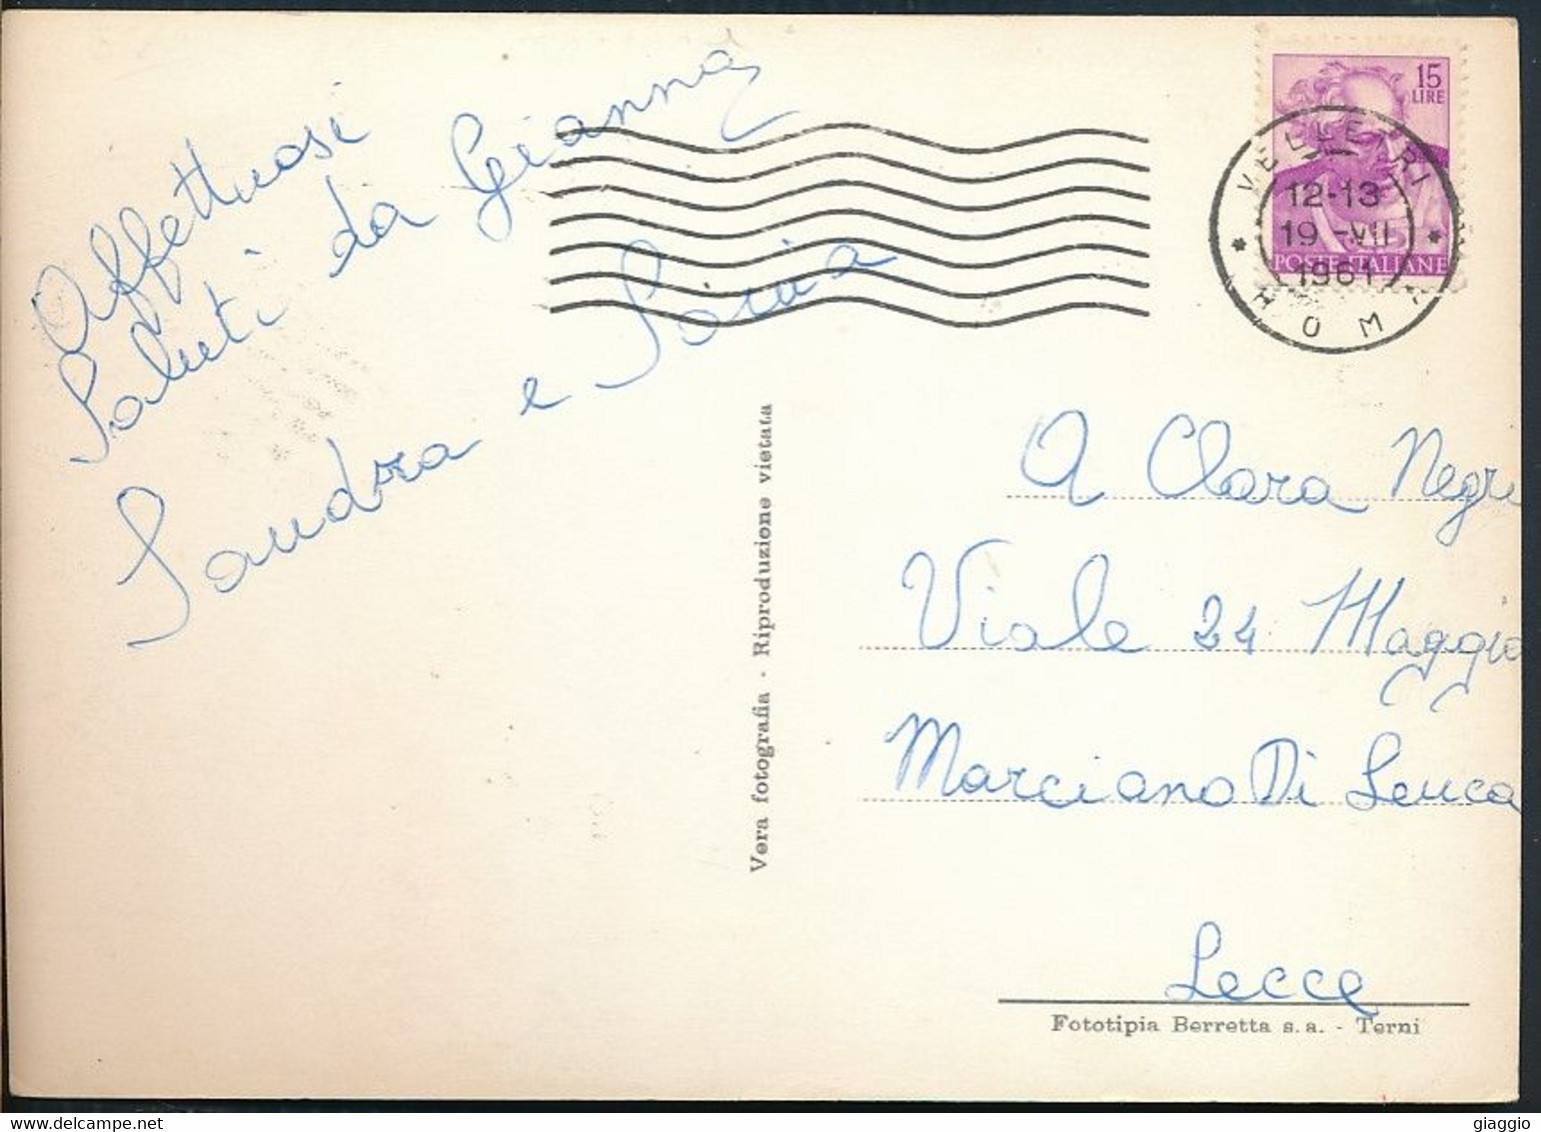 Affettuosi
Saluti da Gianna
Sandra e Silvia
15
LIRE
VELLETRI
12-13
19-VII
1961
POSTE ITALIANE
ROMA
A Clara Negri
Viale 24 Maggio
Marciano Di Leuca
Lecce
Vera fotografia - Riproduzione vietata
Fototipia Berretta s.a. - Terni
giaggio